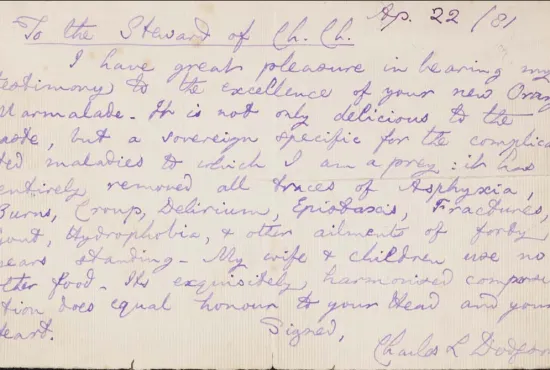 Ap. 22 /81
To the Steward of Ch. Ch.
I have great pleasure in bearing my
testimony to the excellence of your new Orang
Marmalade. It is not only delicious to the
taste, but a sovereign specific for the complica
ted maladies to which I am a prey: it has
entirely removed all traces of Asphyxia,
Burns, Croup, Delirium, Epistaxis, Fractures,
Gout, Hydrophobia, & other ailments of forty
years standing. My wife & children use no
other food. Its exquisitely harmonised composi
tion does equal honour to your Head and your
Heart.
Signed,
Charles L Dodgson